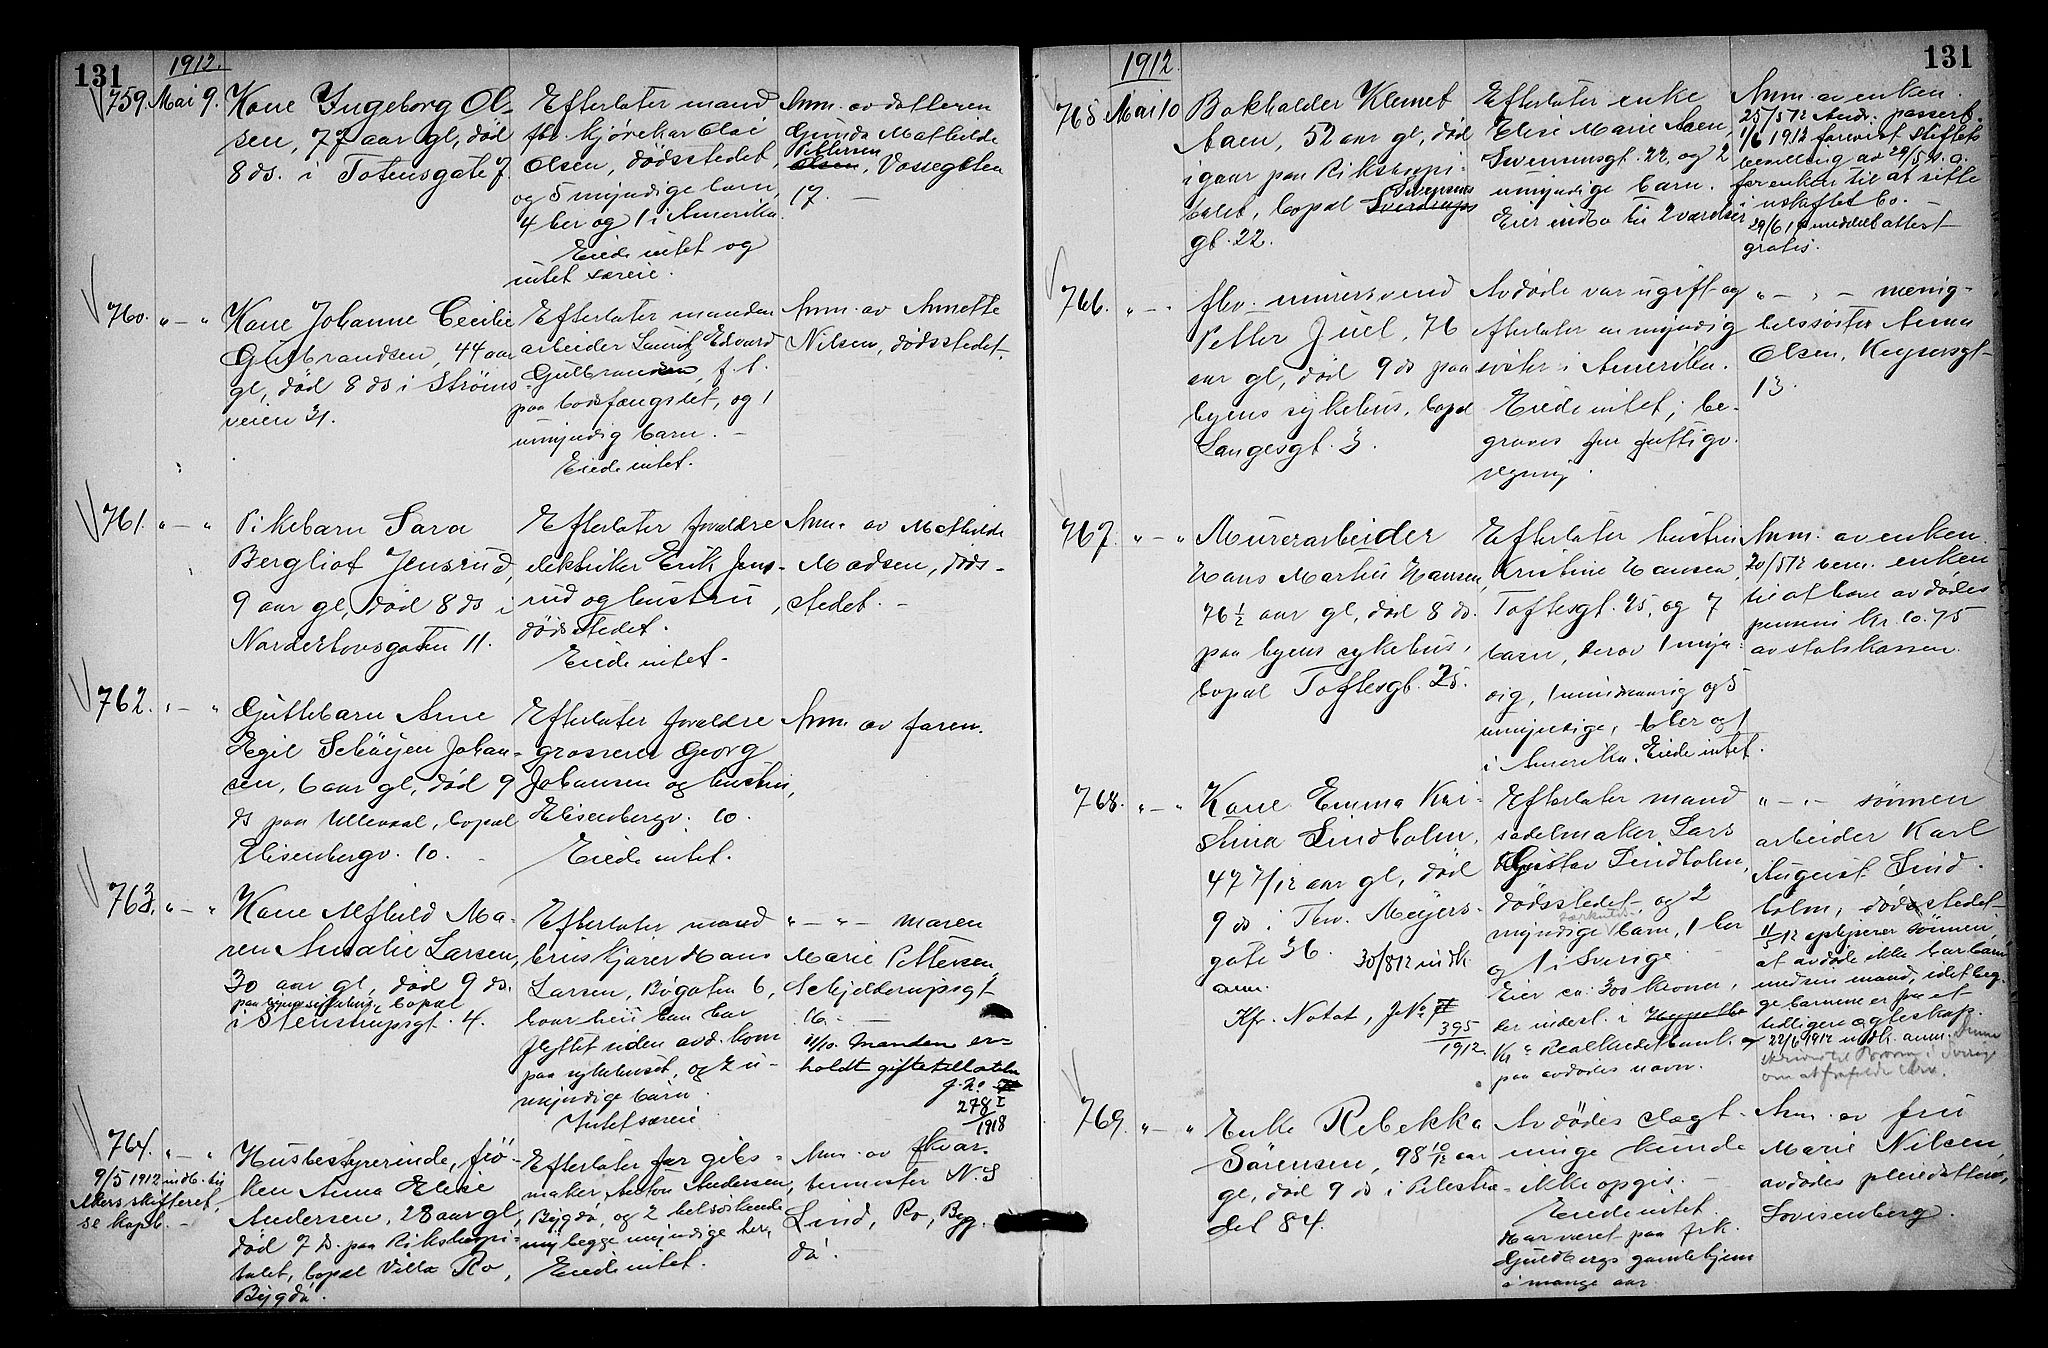 131
1912.
759. Mai 9.
Kone Ingeborg Ol-
sen, 77 aar gl, död
8 ds. i Totensgate 7.
Efterlater mand
fhv. kjörekar Olai
Olsen, dödsstedet,
og 5 myndige barn,
4 her og 1 i Amerika.
Eiede intet og
intet særeie.
Anm. av datteren
Gunda Mathilde
Pettersen
Olsen, Vossegaten
17. —
760. " — "
Kone Johanne Cecilie
Gulbrandsen, 44 aar
gl, död 8 ds i Ströms
veien 31.
Efterlater manden
arbeider Lauritz Edvard
Gulbrandsen, f. t.
paa bodsfængslet, og 1
umyndig barn. —
Eiede intet.
Anm. av Annette
Nilsen, dödsstedet.
761. " — "
Pikebarn Sara
Bergliot Jensrud,
9 aar gl, död 8 ds i
Nordertovsgaten 11.
Efterlater forældre
elektriker Erik Jens-
rud og hustru,
dödsstedet.
Eiede intet.
Anm. av Mathilde
Madsen, döds-
stedet. —
762. " — "
Guttebarn Arne
Egil Schöyen Johan-
sen, 6 aar gl, död 9
ds paa Ullevaal, bopæl
Elisenbergv. 10.
Efterlater forældre
grosserer Georg
Johansen og hustru,
Elisenbergv. 10.
Eiede intet.
Anm. av faren.
763. " — "
Kone Alfhild Ma-
ren Amalie Larsen,
30 aar gl, död 9 ds.
paa byens sykehus, bopæl
i Stenstrupsgt. 4.
Efterlater mand
bruskjører Hans
Larsen, Bögaten 6,
hvor hen han har
flyttet siden avd. kom
paa sykehuset, og 2 u-
myndige barn.
Intet særeie
" — " — maren
Marie Pettersen,
Schjelderupsgt
16. —
11/10. Manden er-
holdt giftetillatelse
J. No
278 I
1918
764. " — "
9/5 1912 indb. til
Akers skifteret,
se kopib. —
Husbestyrerinde, frö-
ken Anna Elise
Andersen, 28 aar gl,
död 7 ds. paa Rikshospi-
talet, bopæl Villa Ro,
Bygdö.
Efterlater far gibs-
maker Anton Andersen,
Bygdö, og 2 helsöskende
begge myndige her.
Eiede intet.
Anm. av kvar-
termester N. S
Lind, Ro, Byg-
dö.
131
1912.
765 Mai 10
Bokholder Klemet
Aaen, 52 aar gl, död
igaar paa Rikshospi-
talet, bopæl Sverdrups
gt. 22.
Efterlater enke
Elise Marie Aaen,
22, og 2
umyndige barn.
Eier indbo til 2 værelser
Anm. av enken.
25/5 12 Andr. passert.
1/6 1912 forevist Stiftets
bevilling av 29/5 d. a.
for enken til at sitte
i uskiftet bo.
29/6 12 meddelt attest
gratis.
766. " — "
fhv. murersvend
Petter Juel, 76
aar gl, död 9 ds paa
byens sykehus, bopæl
Langesgt. 3.
Avdöde var ugift og
efterlater en myndig
söster i Amerika.
Eiede intet; be-
graves for fattigv.
regning.
" — " — menig-
hetssöster Anna
Olsen, Keysersgt-
13.
767. " — "
Murerarbeider
Hans Martin Hansen,
76 1/2 aar gl, död 8 ds.
paa byens sykehus,
bopæl Toftesgt. 25.
Efterlater hustru
Kristine Hansen,
Toftesgt. 25, og 7
barn, derav 1 myn
dig, 1 mindreaarig og 5
umyndige, 6 her og 1
i Amerika. Eiede intet.
Anm. av enken.
20/5 12 bem. enken
til at heve avdödes
pension kr. 10.75
av statskassen.
768. " — "
Kone Emma Kri-
stina Lindholm,
47 7/12 aar gl, död
9 ds i Thv. Meyers-
gate 36.
30/8 12 indk.
anm.
Kfr. Notat, J. No
395
1912.
Efterlater mand
sadelmaker Lars
Gustav Lindholm,
dödsstedet, og 2
særkulds-
myndige barn, 1 her
og 1 i Sverige.
Eier ca: 300 kroner,
der indest. i Hypothe
Kr " Realkreditbank
paa avdödes navn.
" — " — sönnen
arbeider Karl
August Lind-
holm, dödsstedet.
11/5 12 oplyserer sönnen,
at avdöde ikke har barn
med sin mand, idet beg-
ge barnene er fra et
tidligere egteskap.
22/6 1912 indk. anm.
skriver til Broren i Sverige
om at frafalde Arv.
769. " — "
Enke Rebekka
Sörensen, 98 10/12 aar
gl, död 9 ds i Pilestræ-
det 84.
Avdödes slegt-
ninge kunde
ikke opgis. —
Eiede intet.
Har været paa frk.
Guldbergs gamlehjem
i mange aar.
Anm. av fru
Marie Nilsen,
avdödes pleiedatter,
Lovisenberg.